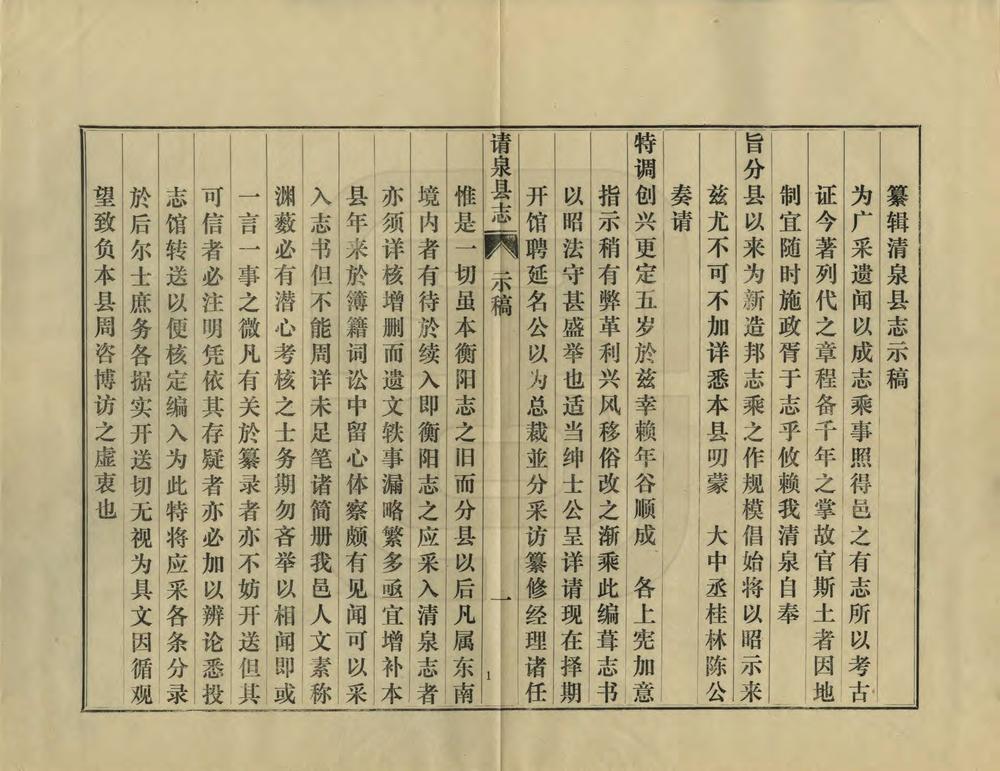 纂辑清泉县志示稿
为广采遗闻以成志乘事照得邑之有志所以考古
证今著列代之章程备千年之掌故官斯土者因地
制宜随时施政胥于志乎攸赖我清泉自奉
旨分县以来为新造邦志乘之作规模倡始将以昭示来
兹尤不可不加详悉本县叨蒙　大中丞桂林陈公
奏请
特调创兴更定五岁於兹幸赖年谷顺成　各上宪加意
指示稍有弊革利兴风移俗改之渐乘此编葺志书
以昭法守甚盛举也适当绅士公呈详请现在择期
开馆聘延名公以为总裁並分采访纂修经理诸任
请泉县志　示稿　一　1
惟是一切虽本衡阳志之旧而分县以后凡属东南
境内者有待於续入即衡阳志之应采入清泉志者
亦须详核增删而遗文轶事漏略繁多亟宜增补本
县年来於簿籍词讼中留心体察颇有见闻可以采
入志书但不能周详未足笔诸简册我邑人文素称
渊薮必有潜心考核之士务期勿吝举以相闻即或
一言一事之微凡有关於纂录者亦不妨开送但其
可信者必注明凭依其存疑者亦必加以辨论悉投
志馆转送以便核定编入为此特将应采各条分录
於后尔士庶务各据实开送切无视为具文因循观
望致负本县周咨博访之虚衷也